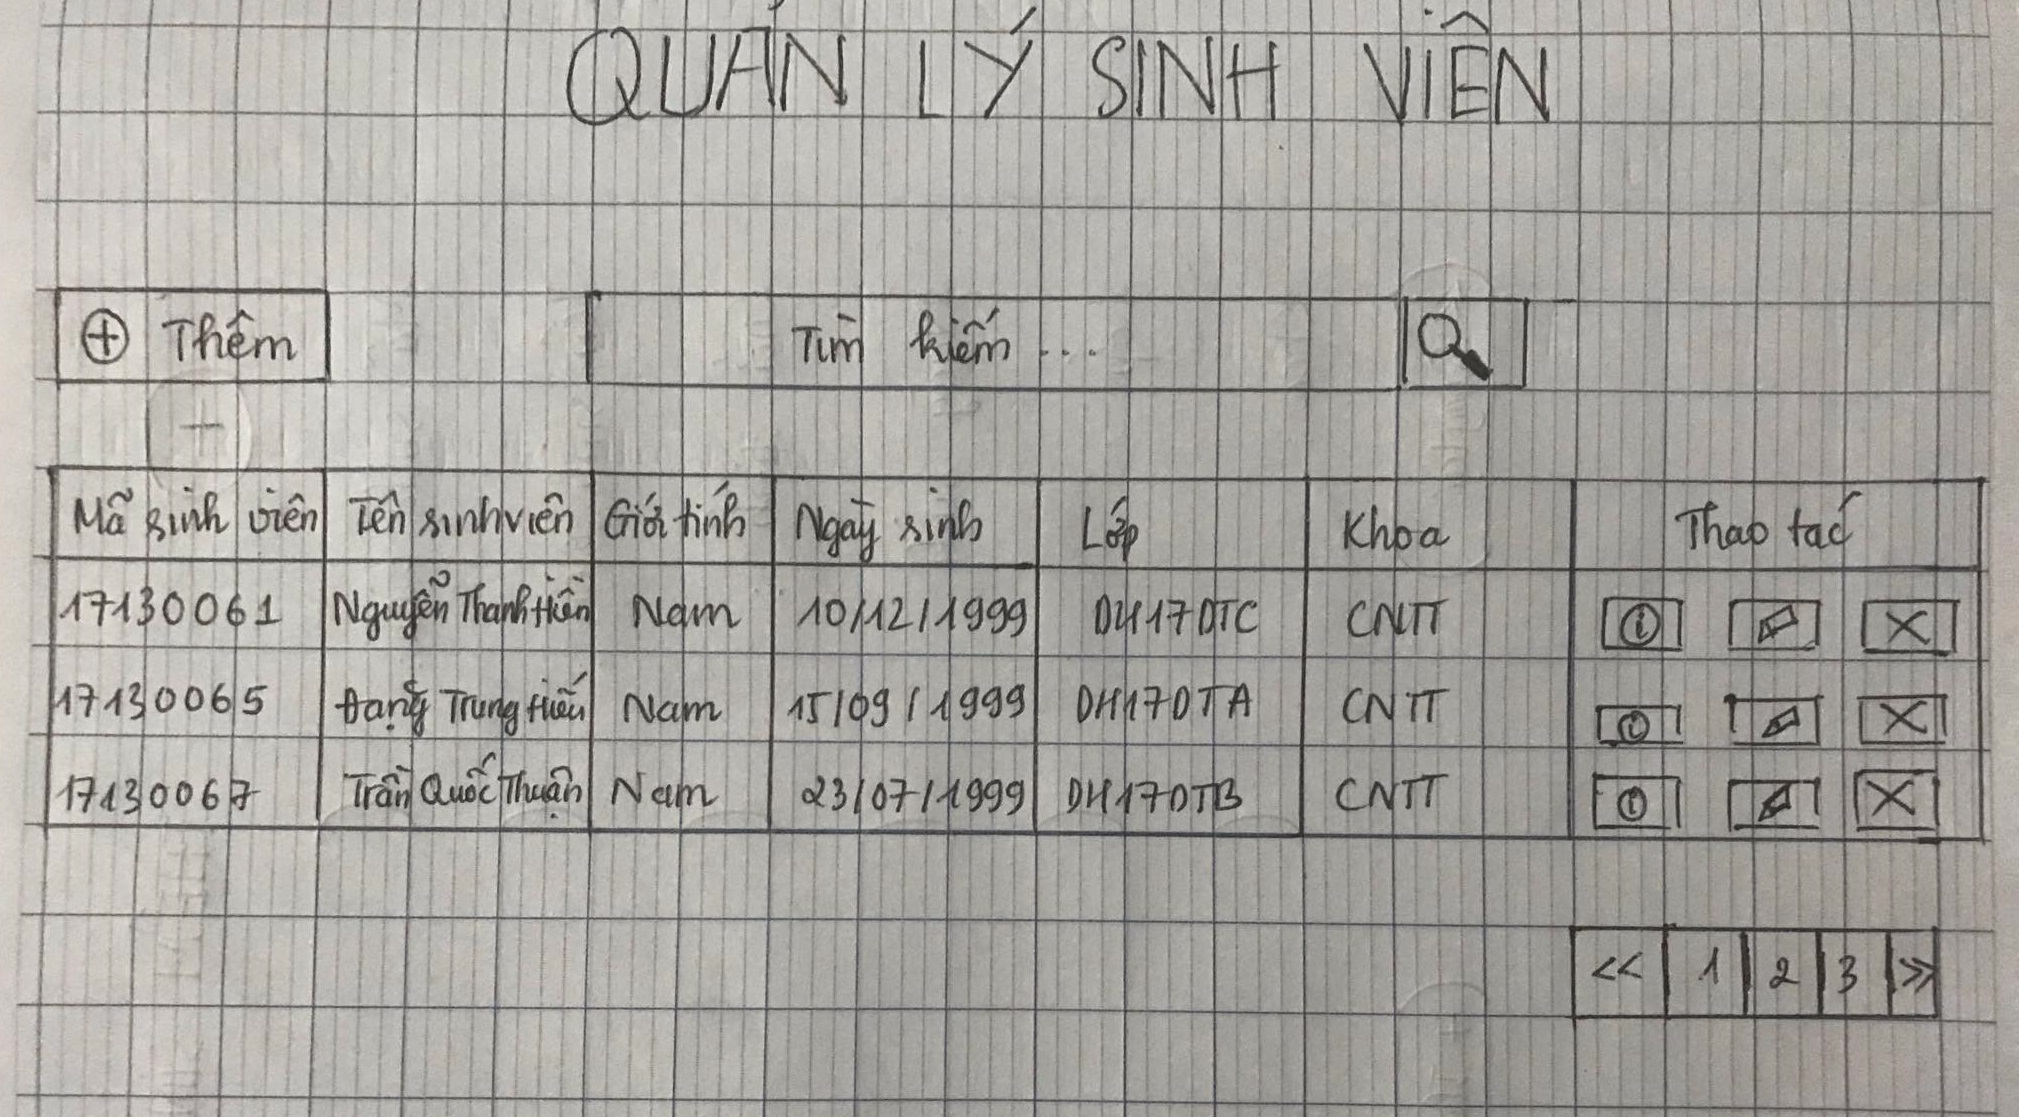 QUẢN LÝ SINH VIÊN
⊕ Thêm
Tìm kiếm ...
Mã sinh viên Tên sinh viên Giới tính Ngày sinh Lớp Khoa Thao tác
17130061 Nguyễn Thanh Hiền Nam 10/12/1999 DH17DTC CNTT
17130065 Đặng Trung Hiếu Nam 15/09/1999 DH17DTA CNTT
17130067 Trần Quốc Thuận Nam 23/07/1999 DH17DTB CNTT
<< 1 2 3 >>